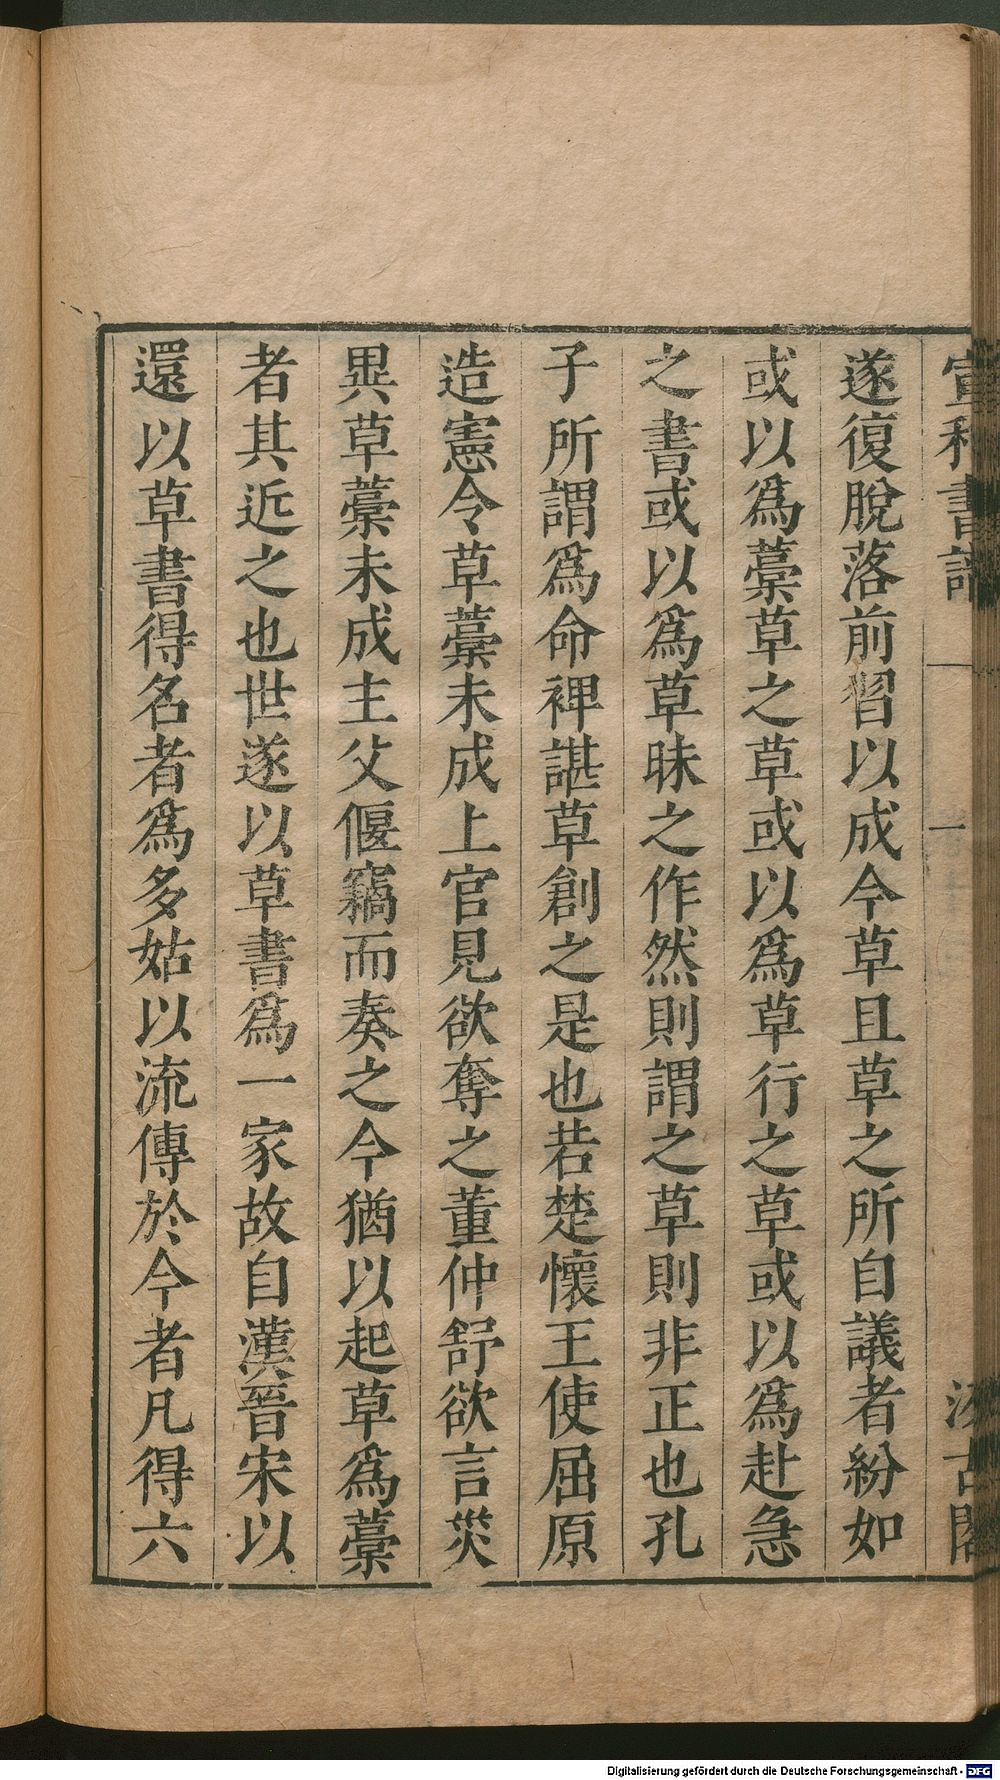 宣和書譜 一 汲古閣
遂復脫落前習以成今草且草之所自議者紛如
或以爲藳草之草或以爲草行之草或以爲赴急
之書或以爲草昧之作然則謂之草則非正也孔
子所謂爲命裨諶草創之是也若楚懷王使屈原
造憲令草藳未成上官見欲奪之董仲舒欲言災
異草藳未成主父偃竊而奏之今猶以起草爲藳
者其近之也世遂以草書爲一家故自漢晉宋以
還以草書得名者爲多姑以流傳於今者凡得六
Digitalisierung gefördert durch die Deutsche Forschungsgemeinschaft - DFG